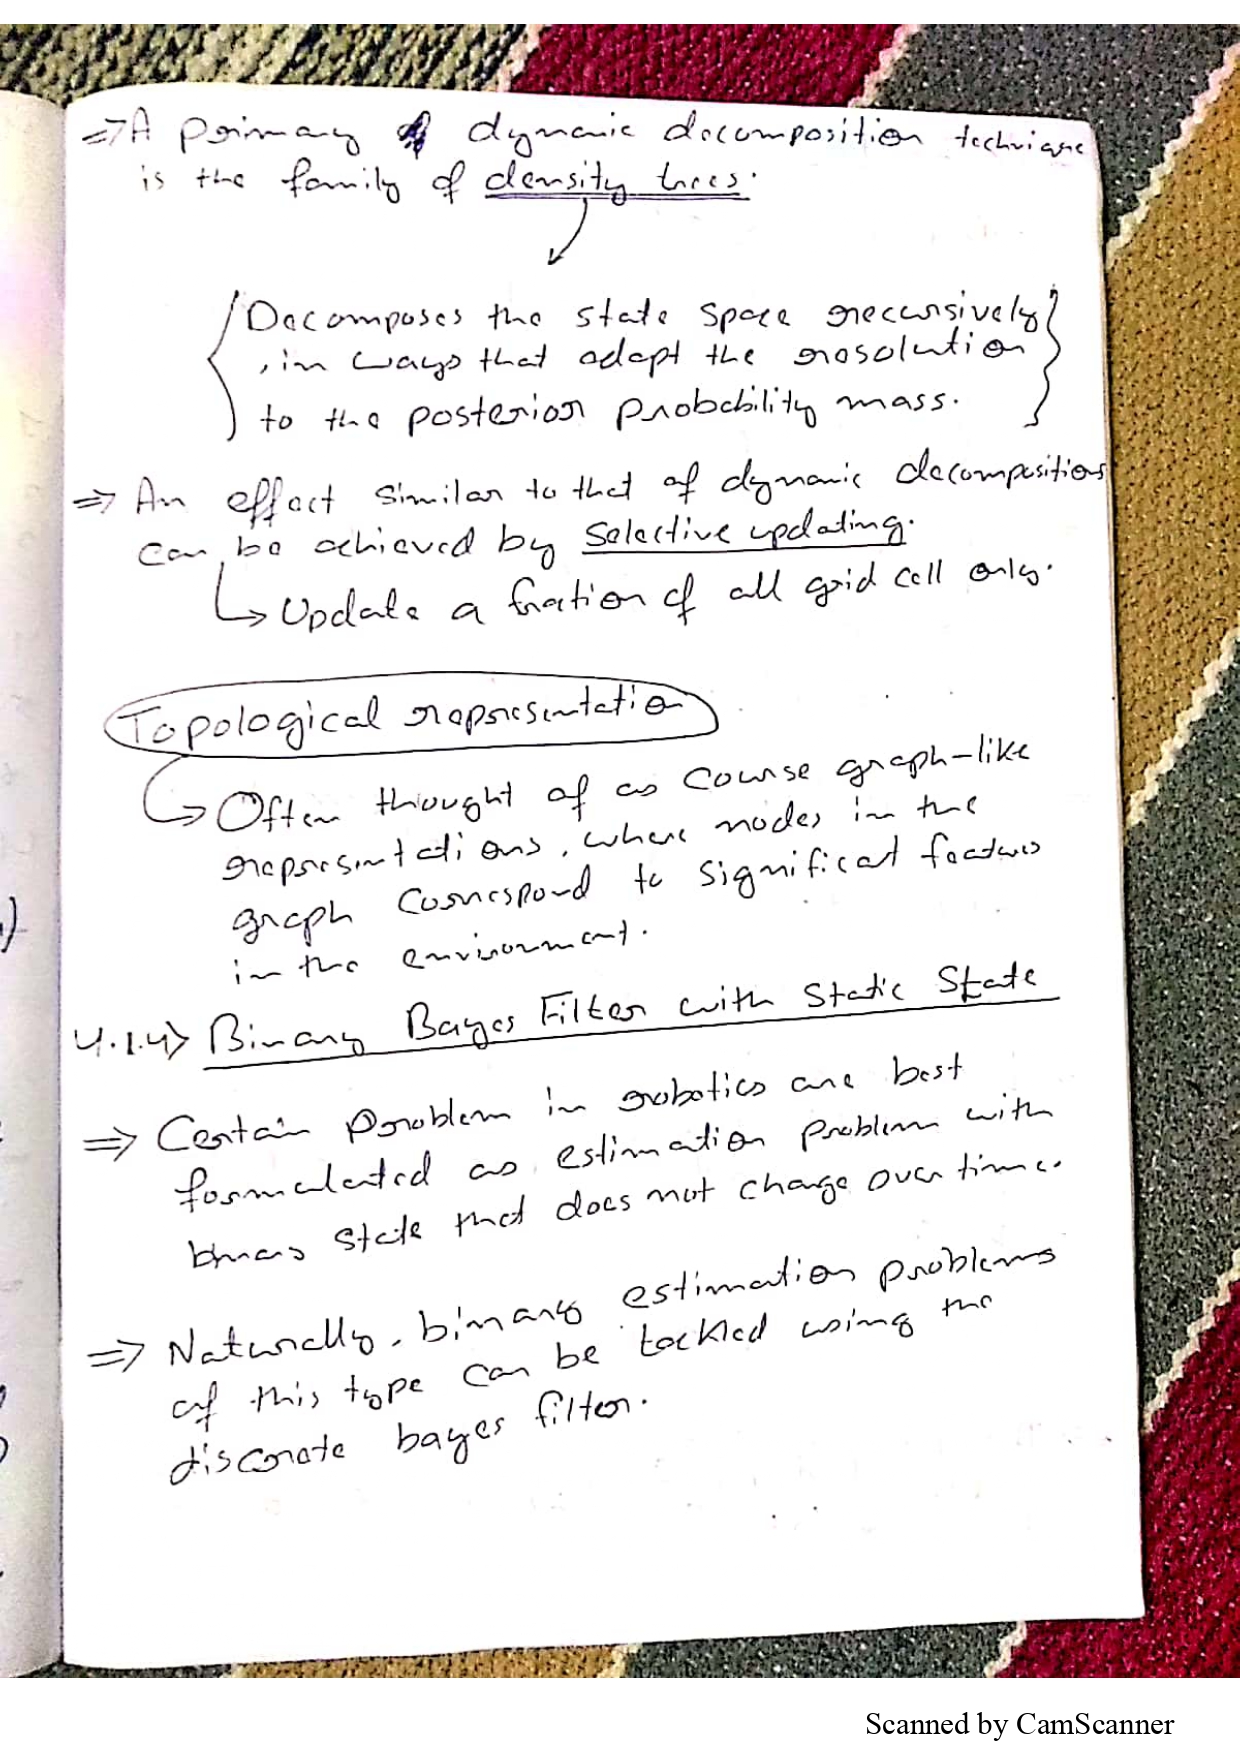 ⇒ A primary dynamic decomposition technique
is the family of density trees.
{Decomposes the state space recursively}
, in ways that adapt the resolution
to the posterior probability mass.
⇒ An effect similar to that of dynamic decomposition
can be achieved by selective updating.
↳ Update a fraction of all grid cell only.
Topological representation
↳ Often thought of as course graph-like
representations, where nodes in the
graph correspond to significant features
in the environment.
4.1.4> Binary Bayes Filter with Static State
⇒ Certain problem in robotics are best
formulated as estimation problem with
binary state that does not change over time.
⇒ Naturally, binary estimation problems
of this type can be tackled using the
discrete bayes filter.
Scanned by CamScanner